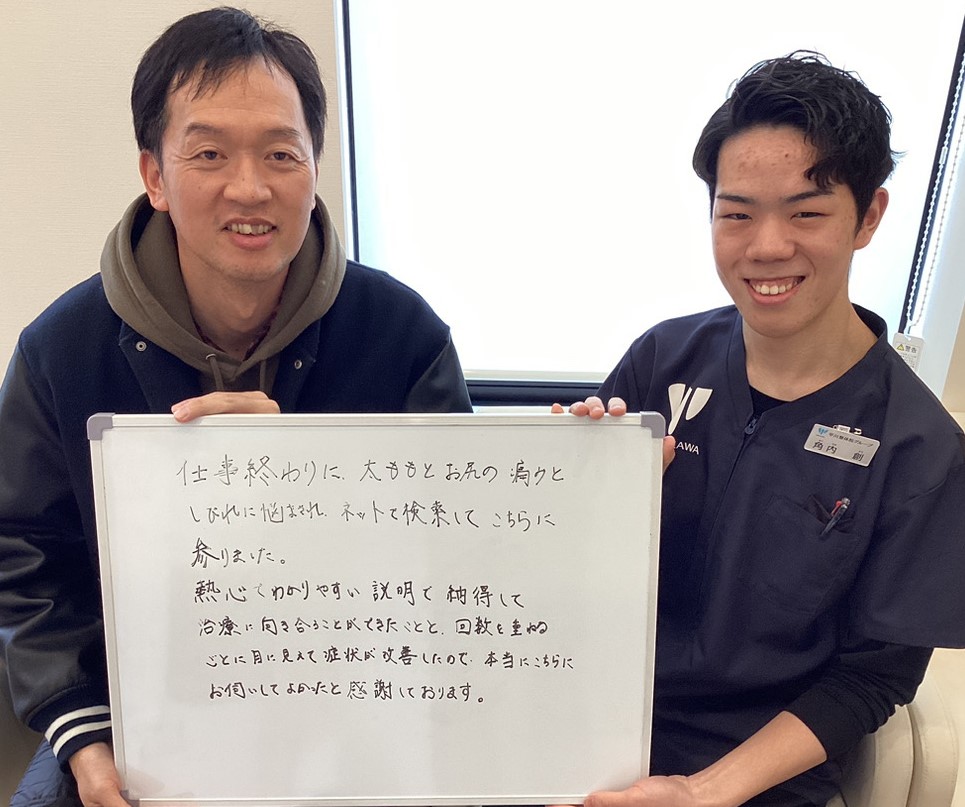 仕事終わりに、太ももとお尻の痛みと
しびれに悩まされ、ネットで検索して こちらに
参りました。
熱心でわかりやすい 説明で 納得して
治療に向き合うことができたことと、回数を重ねる
ごとに目に見えて症状が改善したので、本当にこちらに
お伺いしてよかったと感謝しております。
AWA
角内 創
警告